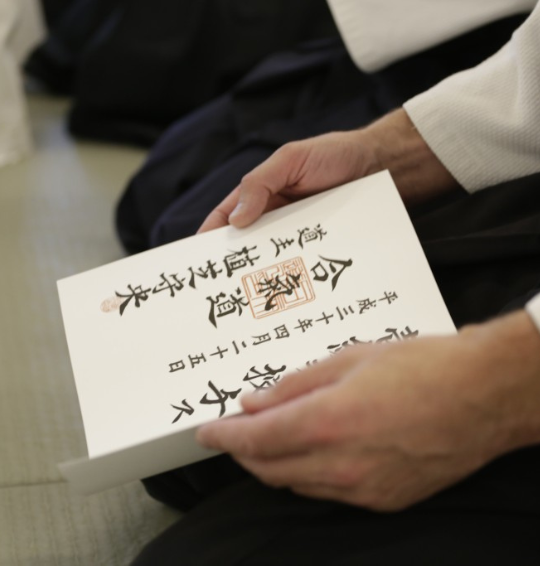 授与ス
平成三十年四月二十五日
合氣道
道主 植芝守央